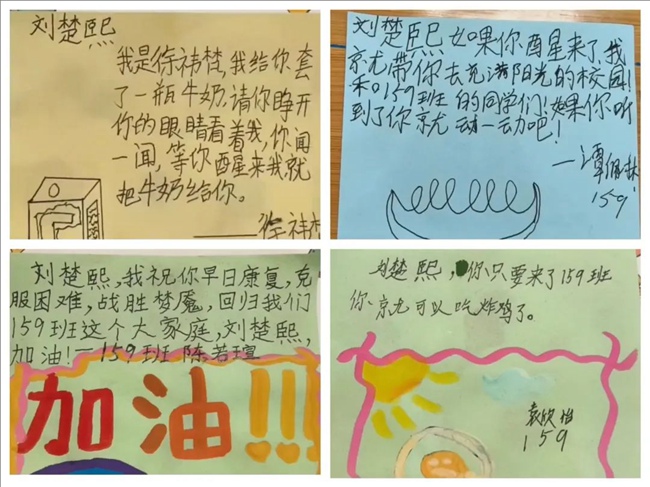 刘楚熙
我是徐祎梵,我给你套
了一瓶牛奶,请你睁开
你的眼睛看着我,你闻
一闻,等你酉星来我,就
把牛奶给你。
——徐祎梵
刘楚熙如果你酉星来了,我
京尤带你去充满阳光的校园!
和159班的同学们!如果你听
到了你京尤动一动吧!
—谭佩林
159
刘楚熙,我祝你早日康复,克
服困难,战胜梦魇,回归我们
159班这个大家庭,刘楚熙,
加油!—159班 陈若瑄
加油!!!
刘楚熙,你只要来了159班
你京尤可以吃炸鸡了。
袁欣怡
159